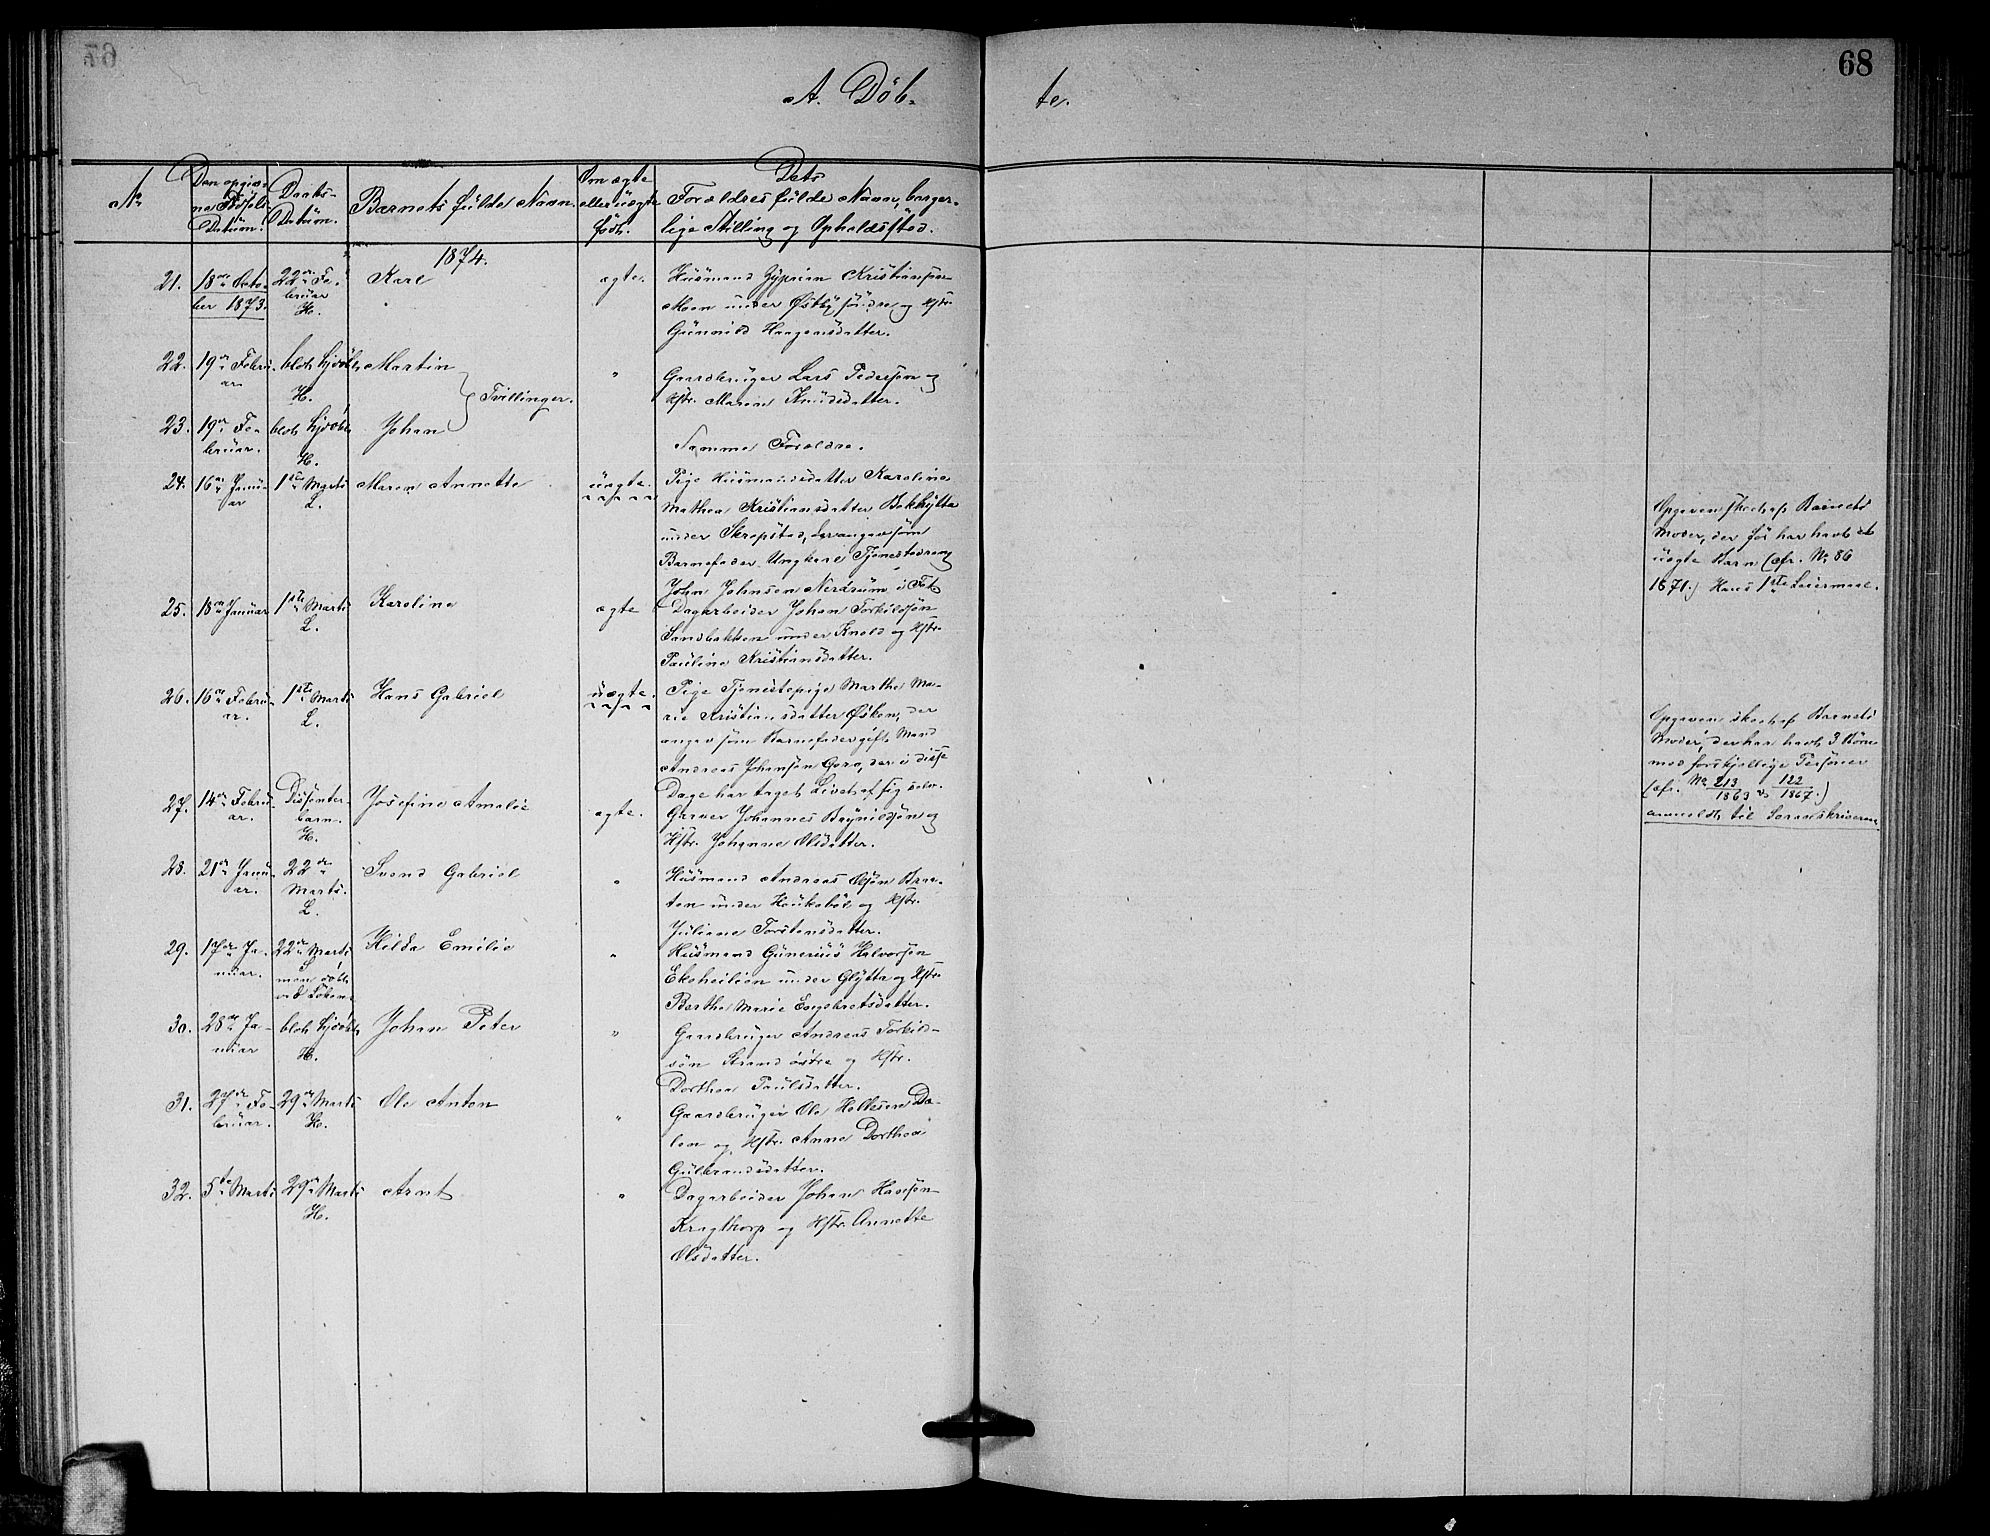 68
A. Döb-
te.
No
Den opgiv-
ne Födsels-
Datum.
Daabs-
Datum.
Barnets fulde Navn.
Om ægte
eller uægte
født.
Dets
Forældres fulde Navn, borger-
lige Stilling og Opholdssted.
1874.
21.
18de Octo-
ber 1873.
22de Fe-
bruar
H.
Karl
ægte.
Husmand Zyprian Kristiansøn
Moen under Østby söndre og Hstr.
Gunnild Haagensdatter.
22.
19de Febru-
ar
blot hjdöbt
H.
Martin
Tvillinger.
"
Gaardbruger Lars Pedersøn og
Hstr. Maren Knudsdatter.
23.
19de Fe-
bruar.
blot hjdöbt
H.
Johan
Samme Forældre.
24.
16de Janu-
ar
1ste Marts
L.
Maren Annette
uægte.
Pige Husmandsdatter Karoline
Mathea Kristiansdatter Bakkhytta
under Skrepstad, der angav som
Barnefader Ungkarl Tjenestedreng
John Johnsen Nerdrum i Fet
Opgaven skeet af Barnets
Moder, der før har havt et
uægte Barn (cfr. No 86
1871.) Hans 1ste Leiermaal.
25.
18de Januar
1ste Marts
L.
Karoline
ægte
Dagarbeider Johan Torkildsøn
Sandbakken under Knold og Hstr.
Pauline Kristiansdatter.
26.
16de Febru-
ar.
1ste Marts
L.
Hans Gabriel
uægte.
Pige Tjenestepige Marthe Ma-
rie Kristiansdatter Øsken, der
angav som Barnefader gift Mand
Andreas Johansøn Goro, der i disse
Dage har taget Livet af sig selv.
Opgaven skeet af Barnets
Moder, der har havt 3 Børn
med forskjellige Personer
(cfr. No 213/1863 & 122/1867.)
anmeldt til Sorenskriveren
27.
14de Febru-
ar.
Dissenter-
barn.
H.
Josefine Amalie
ægte.
Garver Johannes Brynildsøn og
Hstr. Johanne Olsdatter.
28.
21de Janu-
ar.
22de
Marts.
L.
Svend Gabriel
"
Husmand Andreas Olsøn Braa-
ten under Haukebøl og Hstr.
Juliane Torstensdatter.
29.
17de Ja-
nuar.
22de Marts
S
men døbt
ved Løken.
Hilda Emilie
"
Husmand Gunerius Halvorsøn
Ekeheilien under Glytta og Hstr.
Berthe Marie Engebretsdatter.
30.
28de Ja-
nuar
blot hjdöbt
H.
Johan Peter
"
Gaardbruger Andreas Torkild-
søn Strand østre og Hstr.
Dorthea Paulsdatter.
31.
27de Fe-
bruar.
29de Marts
H.
Ole Anton
"
Gaardbruger Ole Hellesen Da-
len og Hstr. Anne Dorthea
Gulbrandsdatter.
32.
5te Marts
29de Marts
H.
Arnt
"
Dagarbeider Johan Hansøn
Kragtorp og Hstr. Annette
Olsdatter.